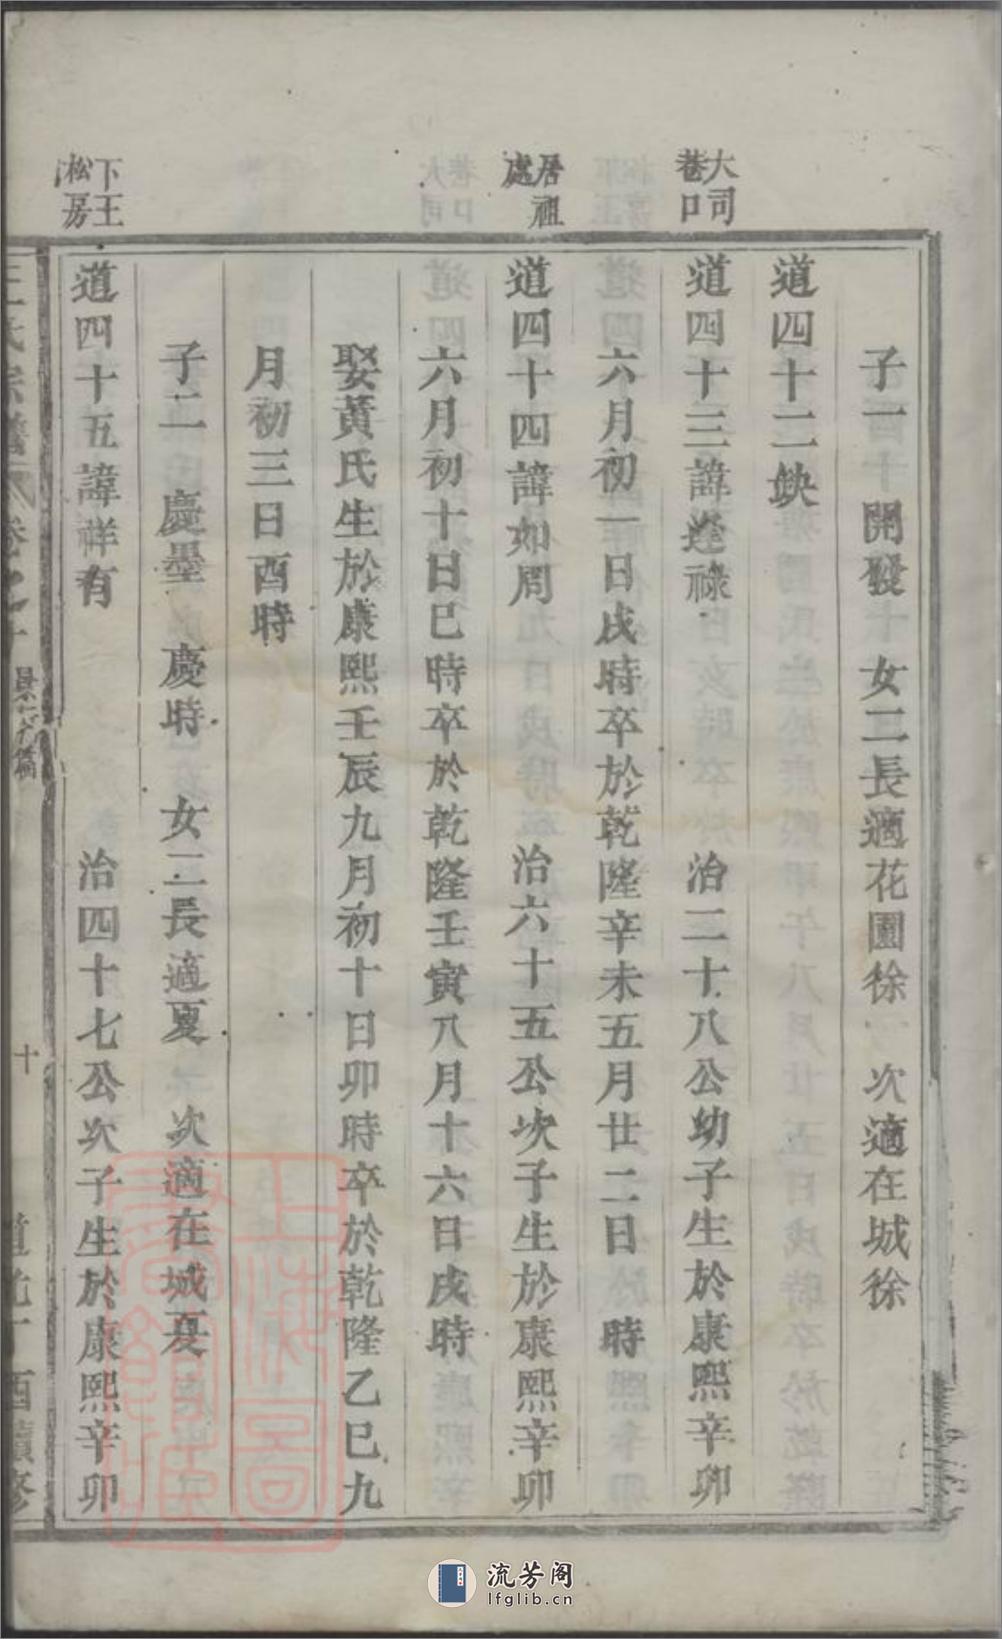 子一　開發　女二長適花園徐　次適在城徐
道四十二缺
大司
巷口
道四十三諱逢祿　治二十八公幼子生於康熙辛卯
六月初一日戌時卒於乾隆辛未五月廿二日　時
居祖
處
道四十四諱如周　治六十五公次子生於康熙辛卯
六月初十日巳時卒於乾隆壬寅八月十六日戌時
娶黃氏生於康熙壬辰九月初十日卯時卒於乾隆乙巳九
月初三日酉時
子二　慶墨　慶時　女二長適夏　次適在城夏
下王
松房
道四十五諱祥有　治四十七公次子生於康熙辛卯
王氏宗譜　卷之十
十
道光丁酉續修
上海圖書館藏
流芳阁
lfglib.cn